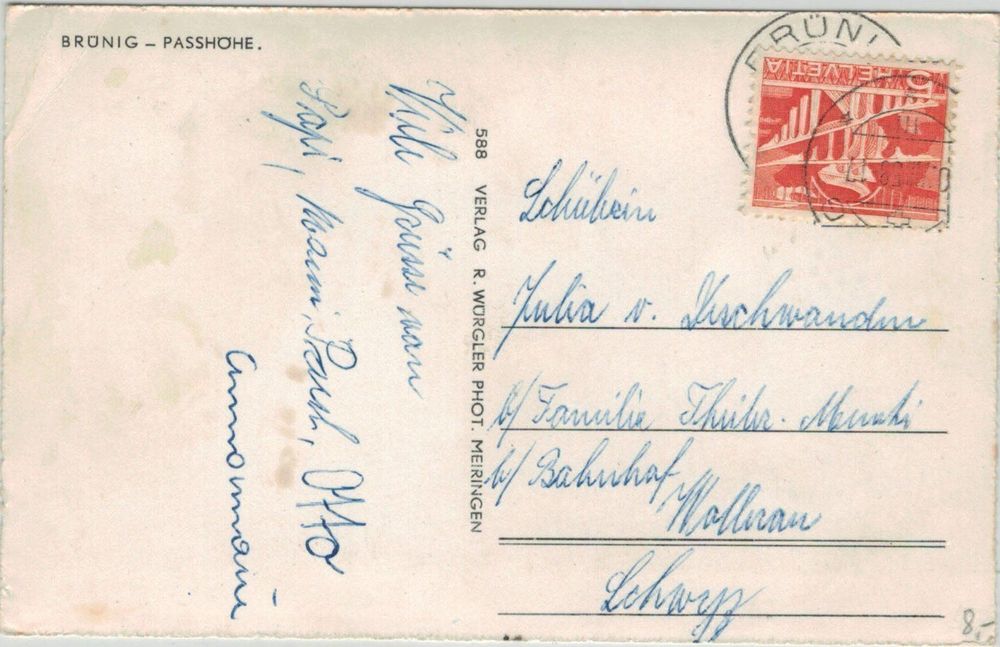 BRÜNIG – PASSHÖHE.
Viele Grüsse von
Papi, Mami, Paul, Otto
Annamarie
588 VERLAG R. WÜRGLER PHOT. MEIRINGEN
HELVETIA
5
BRÜNIG
Julia v. Deschwanden
b/ Familie Thuler-
b/ Bahnhof
Wollerau
Schwyz
8.-